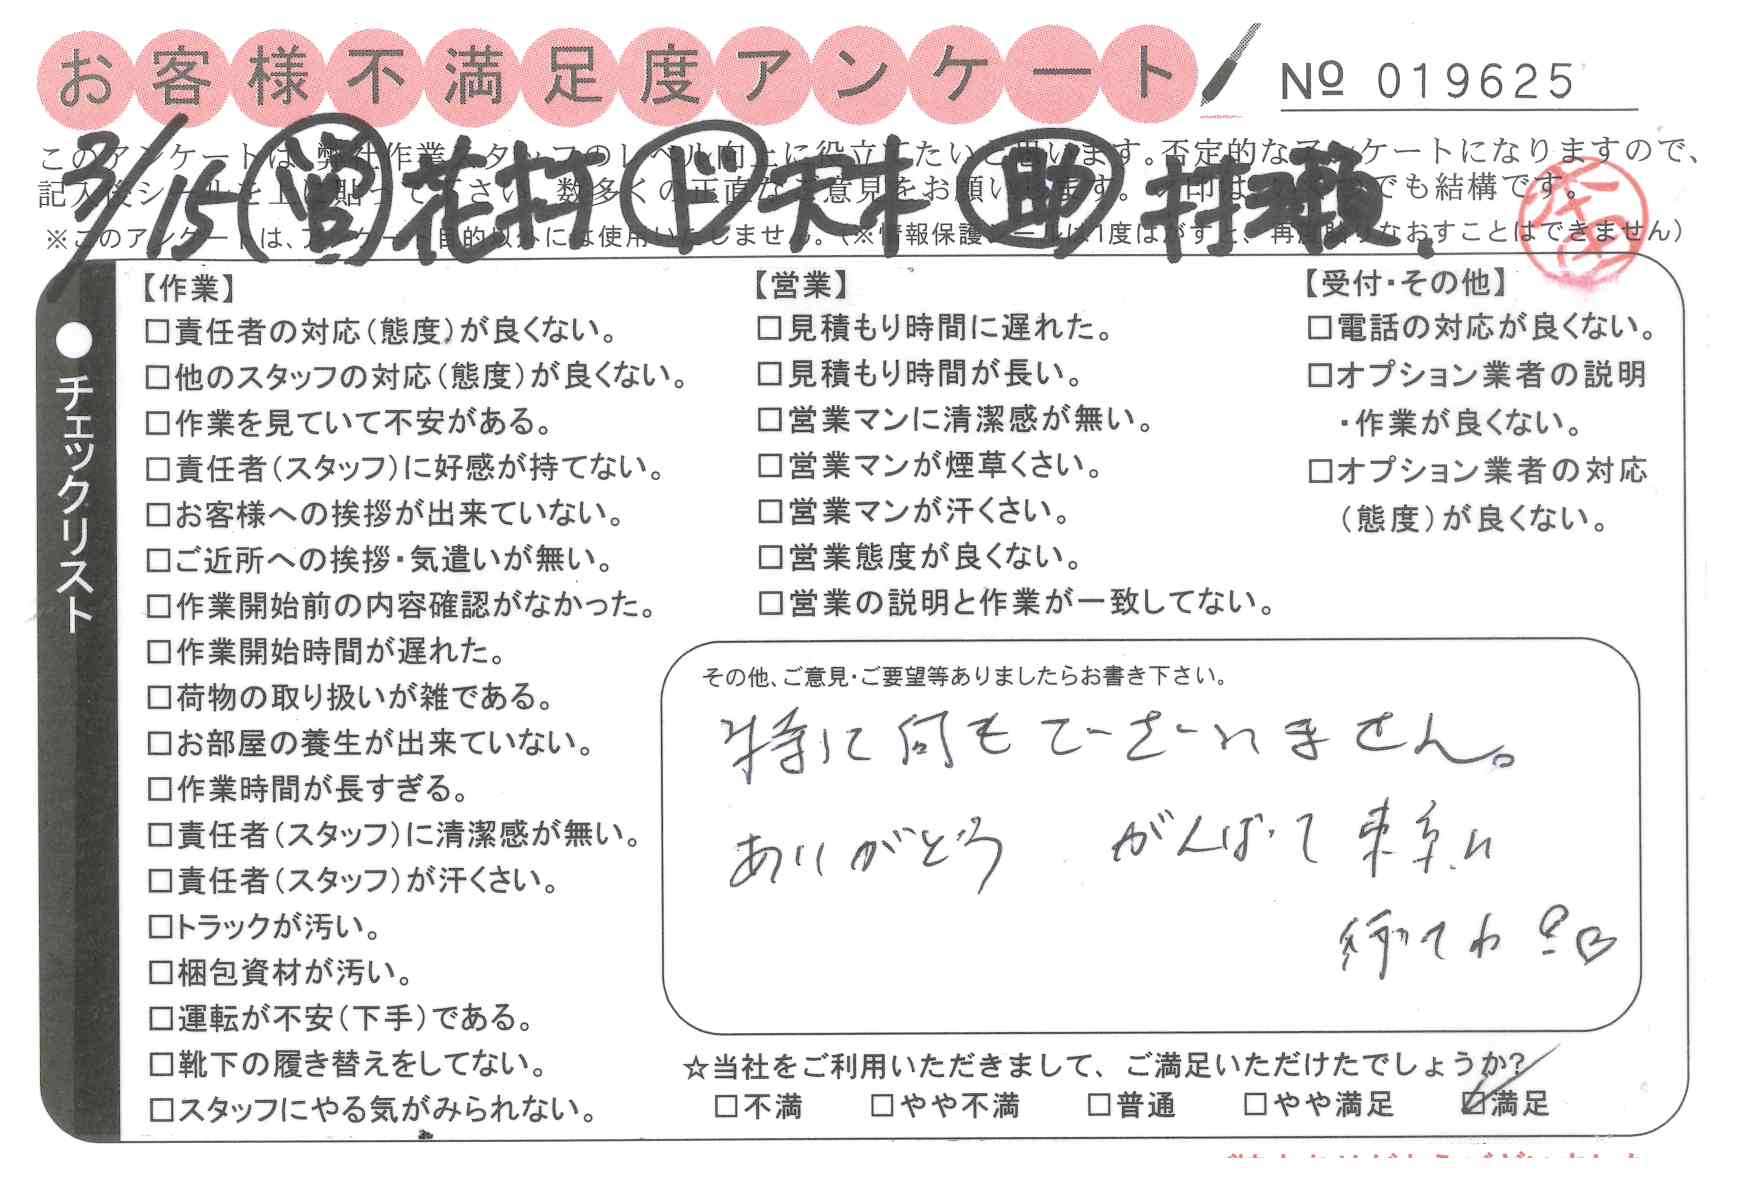 お客様不満足度アンケート
№ 019625
3/15 営 花村 ド 天木 助 村瀬.
このアンケートは、弊社作業スタッフのレベル向上に役立てたいと思います。否定的なアンケートになりますので、
記入後シールを上に貼って下さい。数多くの正直なご意見をお願いします。
※このアンケートは、アンケート目的以外には使用いたしません。(※情報保護シールは1度はがすと、再度貼りなおすことはできません)
●チェックリスト
【作業】
□責任者の対応(態度)が良くない。
□他のスタッフの対応(態度)が良くない。
□作業を見ていて不安がある。
□責任者(スタッフ)に好感が持てない。
□お客様への挨拶が出来ていない。
□ご近所への挨拶・気遣いが無い。
□作業開始前の内容確認がなかった。
□作業開始時間が遅れた。
□荷物の取り扱いが雑である。
□お部屋の養生が出来ていない。
□作業時間が長すぎる。
□責任者(スタッフ)に清潔感が無い。
□責任者(スタッフ)が汗くさい。
□トラックが汚い。
□梱包資材が汚い。
□運転が不安(下手)である。
□靴下の履き替えをしてない。
□スタッフにやる気がみられない。
【営業】
□見積もり時間に遅れた。
□見積もり時間が長い。
□営業マンに清潔感が無い。
□営業マンが煙草くさい。
□営業マンが汗くさい。
□営業態度が良くない。
□営業の説明と作業が一致してない。
【受付・その他】
□電話の対応が良くない。
□オプション業者の説明
・作業が良くない。
□オプション業者の対応
(態度)が良くない。
その他、ご意見・ご要望等ありましたらお書き下さい。
特に何もございません。
ありがとう がんばって東京に
帰てね!♡
☆当社をご利用いただきまして、ご満足いただけたでしょうか?
□不満 □やや不満 □普通 □やや満足 ☑満足